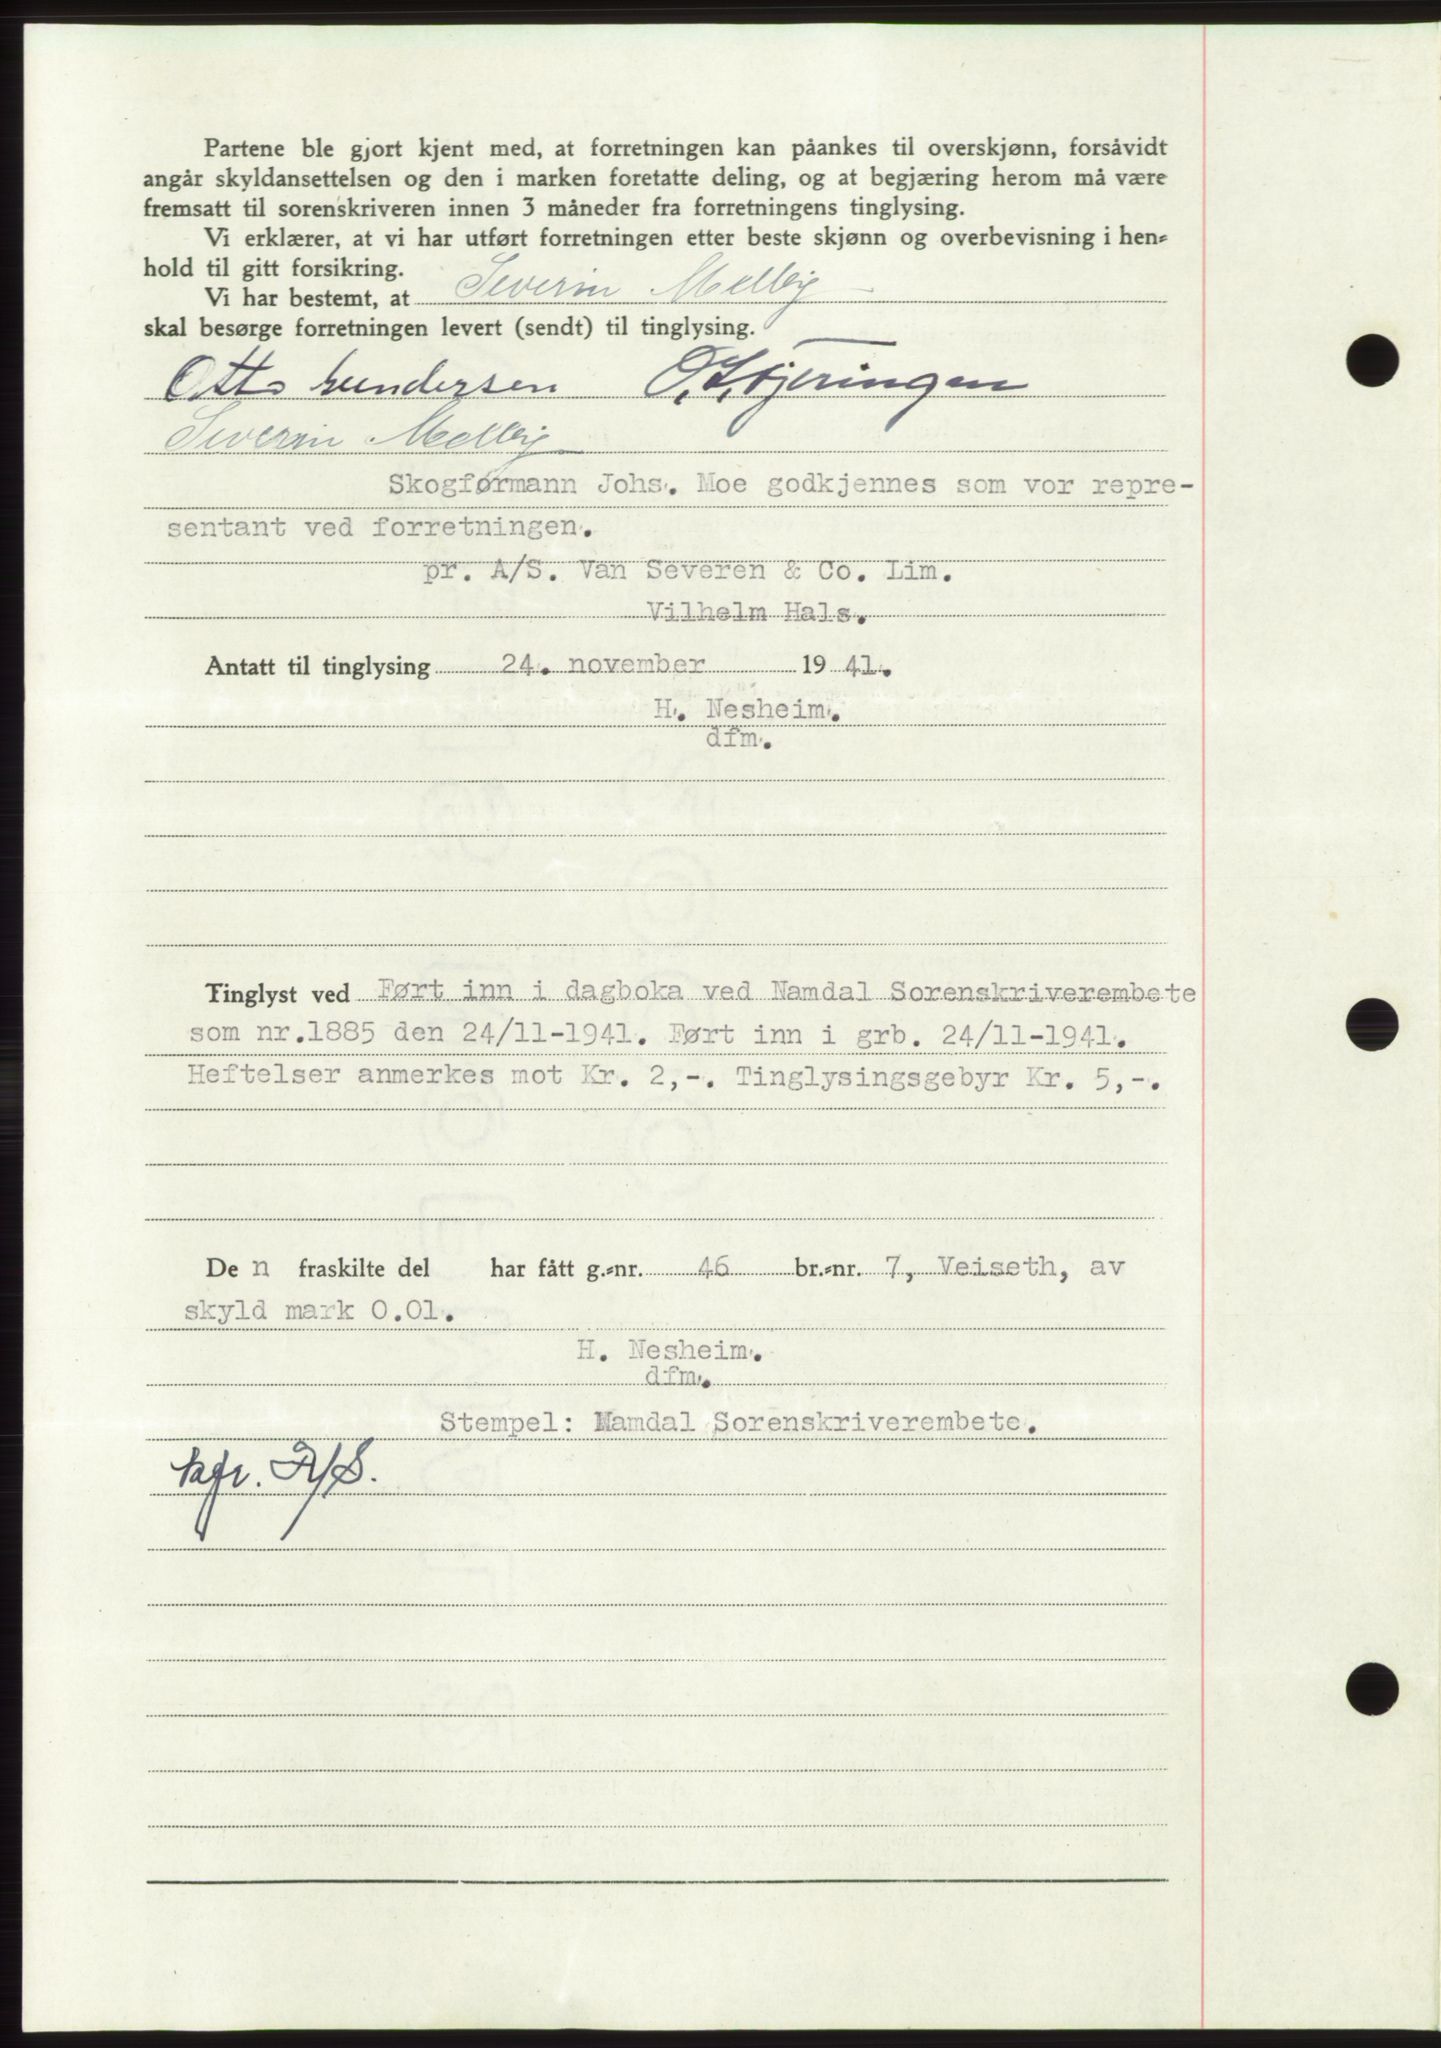 Partene ble gjort kjent med, at forretningen kan påankes til overskjønn, forsåvidt
angår skyldansettelsen og den i marken foretatte deling, og at begjæring herom må være
fremsatt til sorenskriveren innen 3 måneder fra forretningens tinglysing.
Vi erklærer, at vi har utført forretningen etter beste skjønn og overbevisning i hen-
hold til gitt forsikring.
Vi har bestemt, at Severin Melby
skal besørge forretningen levert (sendt) til tinglysing.
Otto
Severin Melby
Skogførmann Johs. Moe godkjennes som vor repre-
sentant ved forretningen.
pr. A/S. Van Severen & Co. Lim.
Vilhelm Hals.
Antatt til tinglysing 24. november 1941.
H. Nesheim.
dfm.
Tinglyst ved Ført inn i dagboka ved Namdal Sorenskriverembete
som nr.1885 den 24/11-1941. Ført inn i grb. 24/11-1941.
Heftelser anmerkes mot Kr. 2,-. Tinglysingsgebyr Kr. 5,-.
Den fraskilte del har fått g.-nr. 46 br.-nr. 7, Veiseth, av
skyld mark 0.01.
H. Nesheim.
dfm.
Stempel: Namdal Sorenskriverembete.